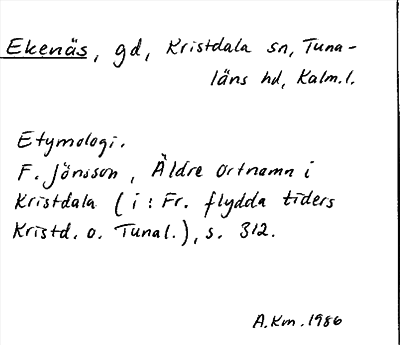 Ekenäs, gd, Kristdala sn, Tuna-
läns hd, Kalm.l.
Etymologi.
F. Jönsson, Äldre ortnamn i
Kristdala (i: Fr. flydda tiders
Kristd. o. Tunal.), s. 312.
A.Km. 1986